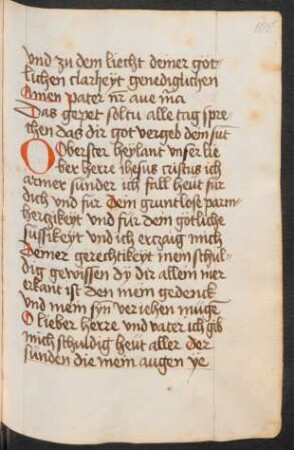 165
vnd zu dem liecht deiner göt
lichen clarheyt genediglichen
Amen pater nr aue mia
Das gepet soltu alle tag spre
chen das dir got vergeb dein sut
O Oberster heylant vnser lie
ber herre ihesus cristus ich
armer sunder ich fall heut fur
dich vnd fur Dein gruntlose parm
herczikeyt vnd fur dein götliche
sussikeyt vnd ich erczaig mich
Deiner gerechtikeyt mein schul
dig gewissen dy dir allein mer
erkant ist den mein gedenck
vnd mein syn veriehen muge
O lieber herre vnd vater ich gib
mich schuldig heut aller der
sunden die mein augen ye